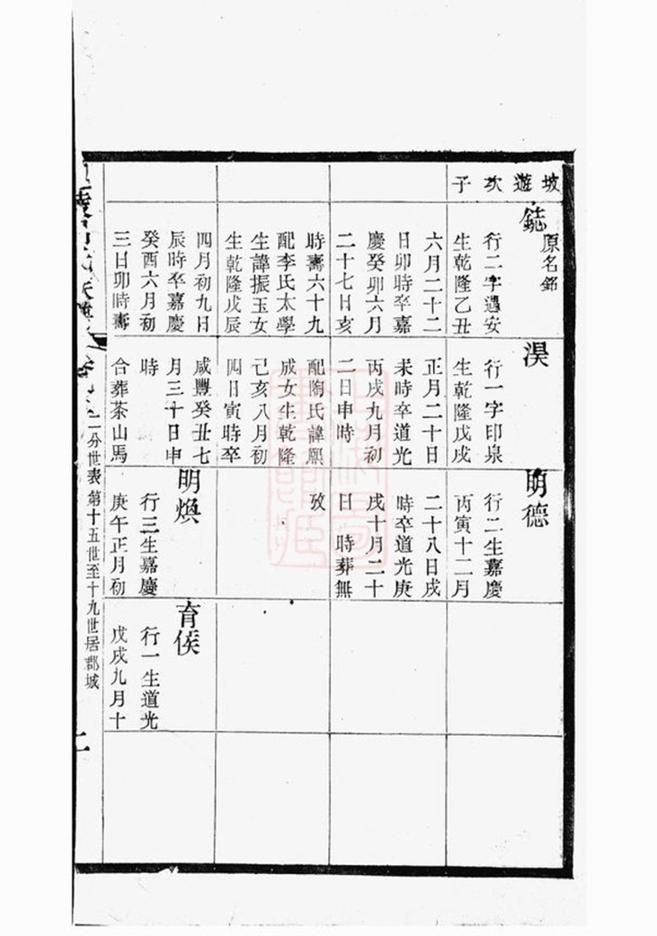 坡遊次子
鋕
原名銘
行二字遇安
生乾隆乙丑
六月二十二
日卯時卒嘉
慶癸卯六月
二十七日亥
時壽六十九
配李氏太學
生諱振玉女
生乾隆戊辰
四月初九日
辰時卒嘉慶
癸酉六月初
三日卯時壽
淏
行一字印泉
生乾隆戊戌
正月二十日
未時卒道光
丙戌九月初
二日申時
配陶氏諱熙
成女生乾隆
己亥八月初
四日寅時卒
咸豐癸丑七
月三十日申
時
合葬茶山馬
明德
行二生嘉慶
丙寅十二月
二十八日戌
時卒道光庚
戌十月二十
日 時葬無
攷
明煥
行三生嘉慶
庚午正月初
育侯
行一生道光
戊戌九月十
一分世表第十五世至十九世居郡城